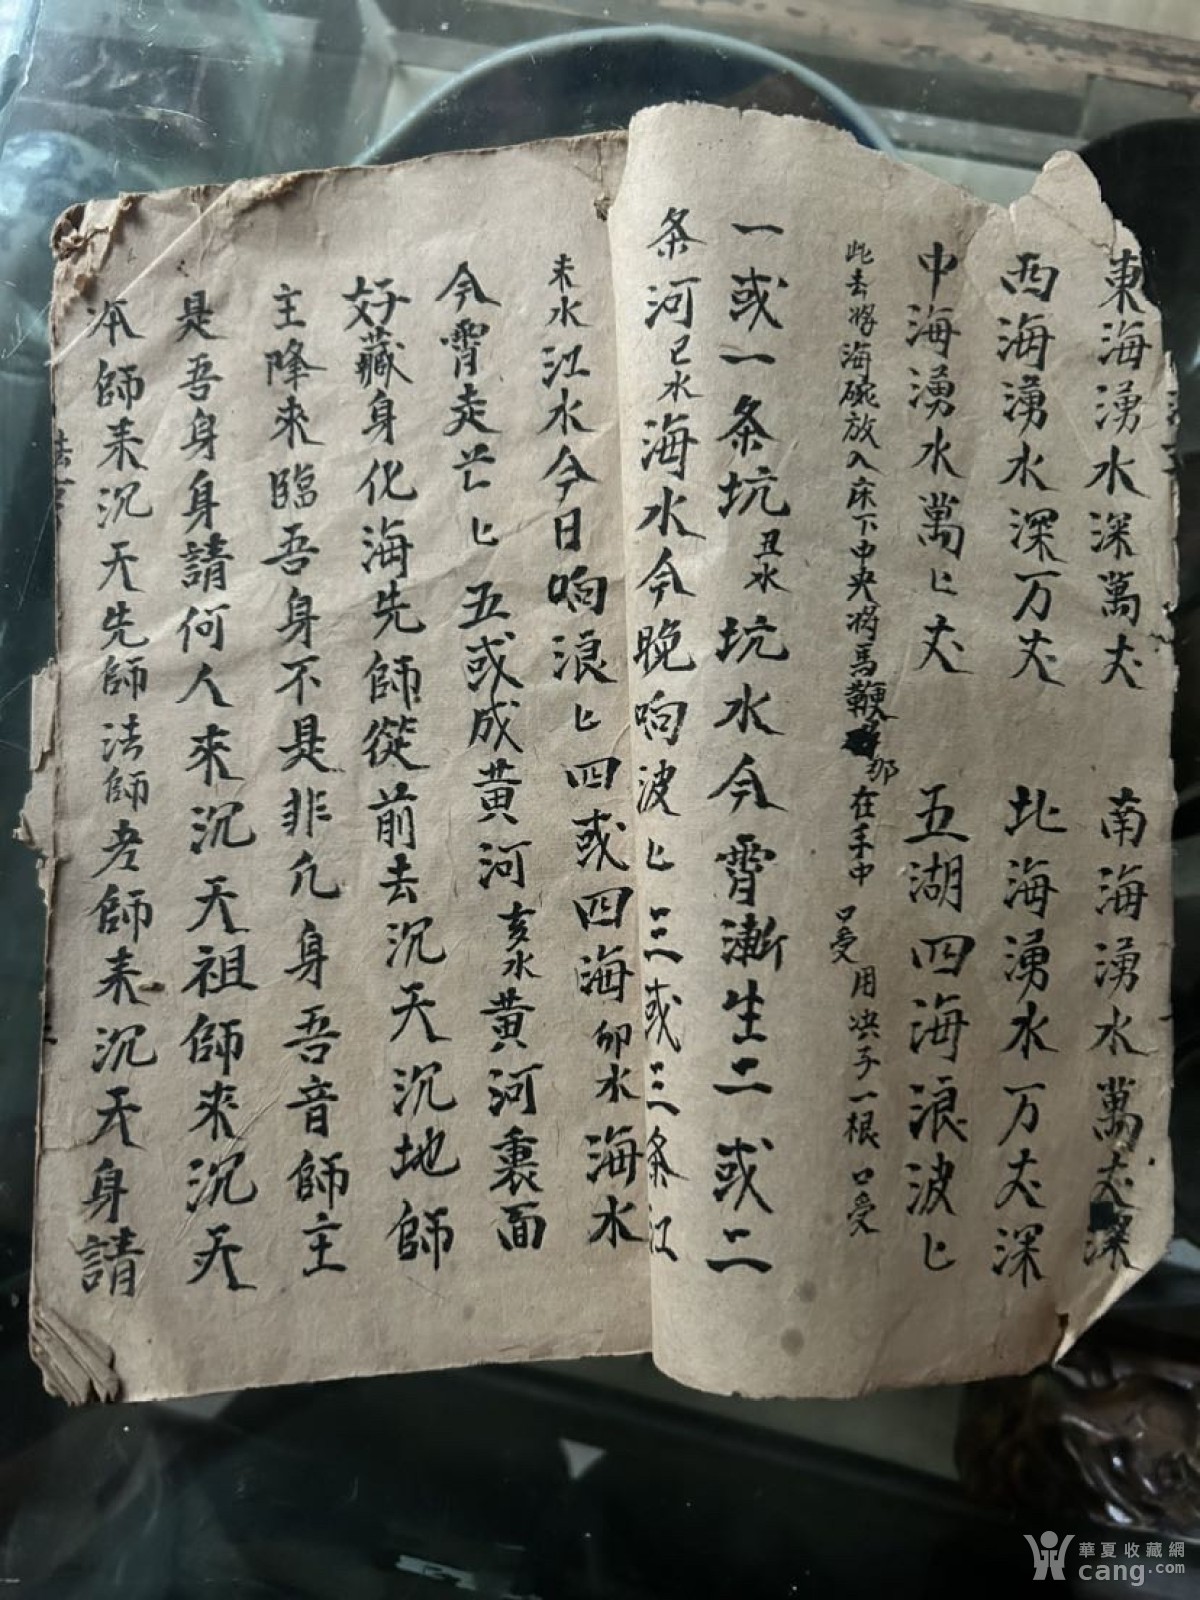 東海湧水深萬丈 南海湧水萬丈深
西海湧水深万丈 北海湧水万丈深
中海湧水萬匕丈 五湖四海浪波匕
此去将海碗放入床下中央将馬鞭那在手中 口受 用决子一根 口受
一或一条坑丑水坑水今霄漸生二或二
条河已水海水今晚响波匕三或三条江
未水江水今日响浪匕四或四海卯水海水
今霄走亡匕五或成黄河亥水黄河裏面
好藏身化海先師從前去沉天沉地師
主降來臨吾身不是非凢身吾音師主
是吾身身請何人來沉天祖師來沉天
本師来沉天先師法師老師来沉天身請
華夏收藏網
cang.com